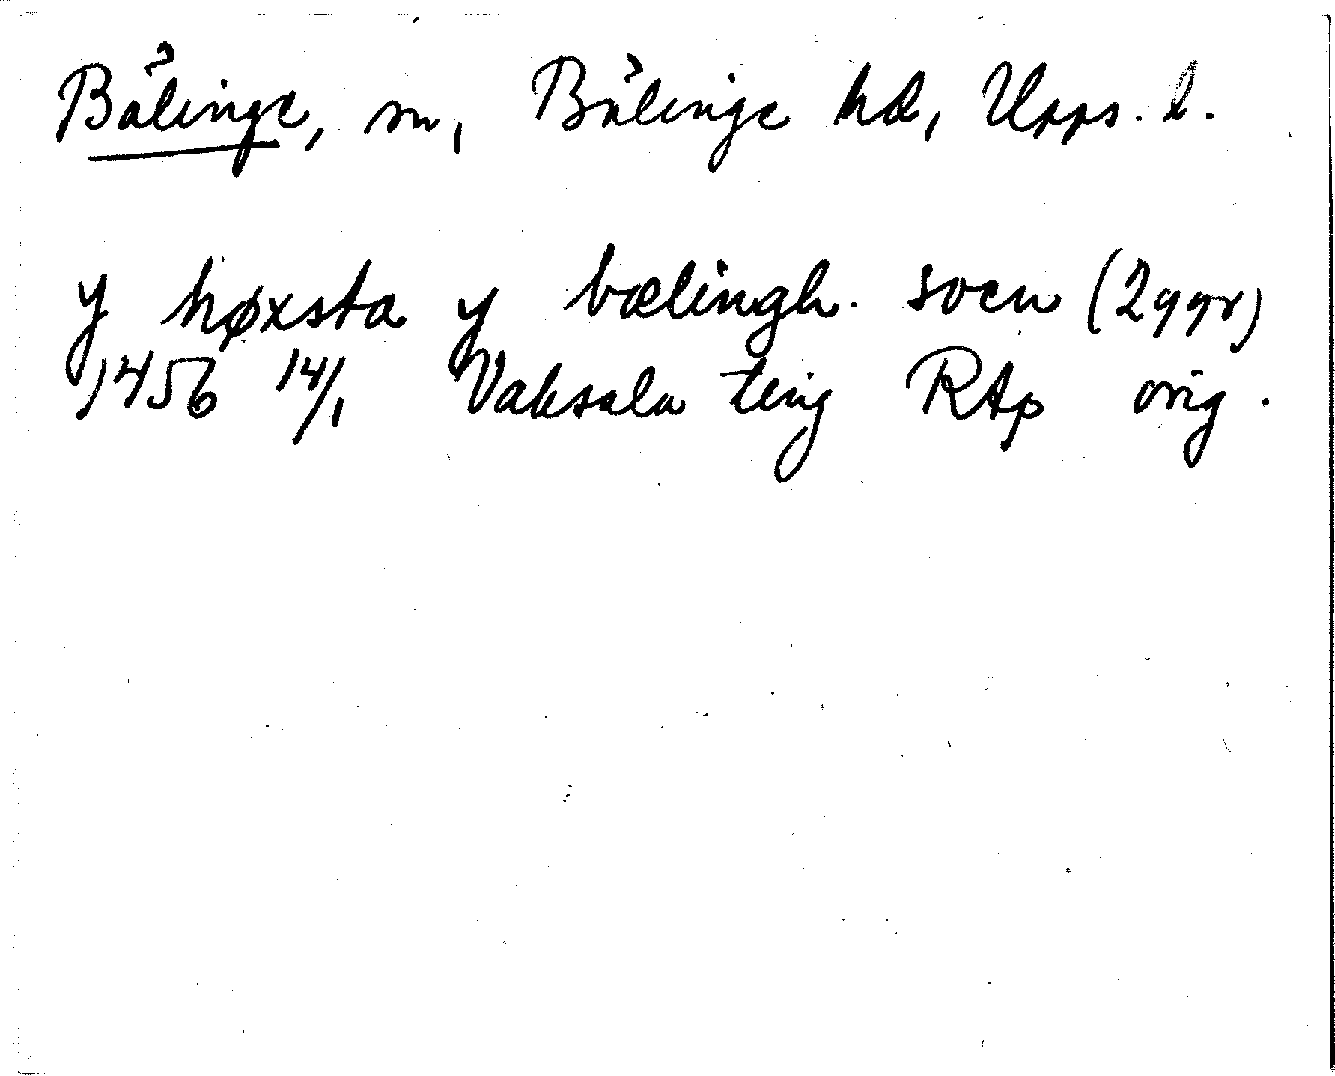 Bälinge, sn, Bälinge hd, Upps. l.
y høxsta y bælingh. socn (2ggr)
1456 14/1 Vaksala ting RAp orig.